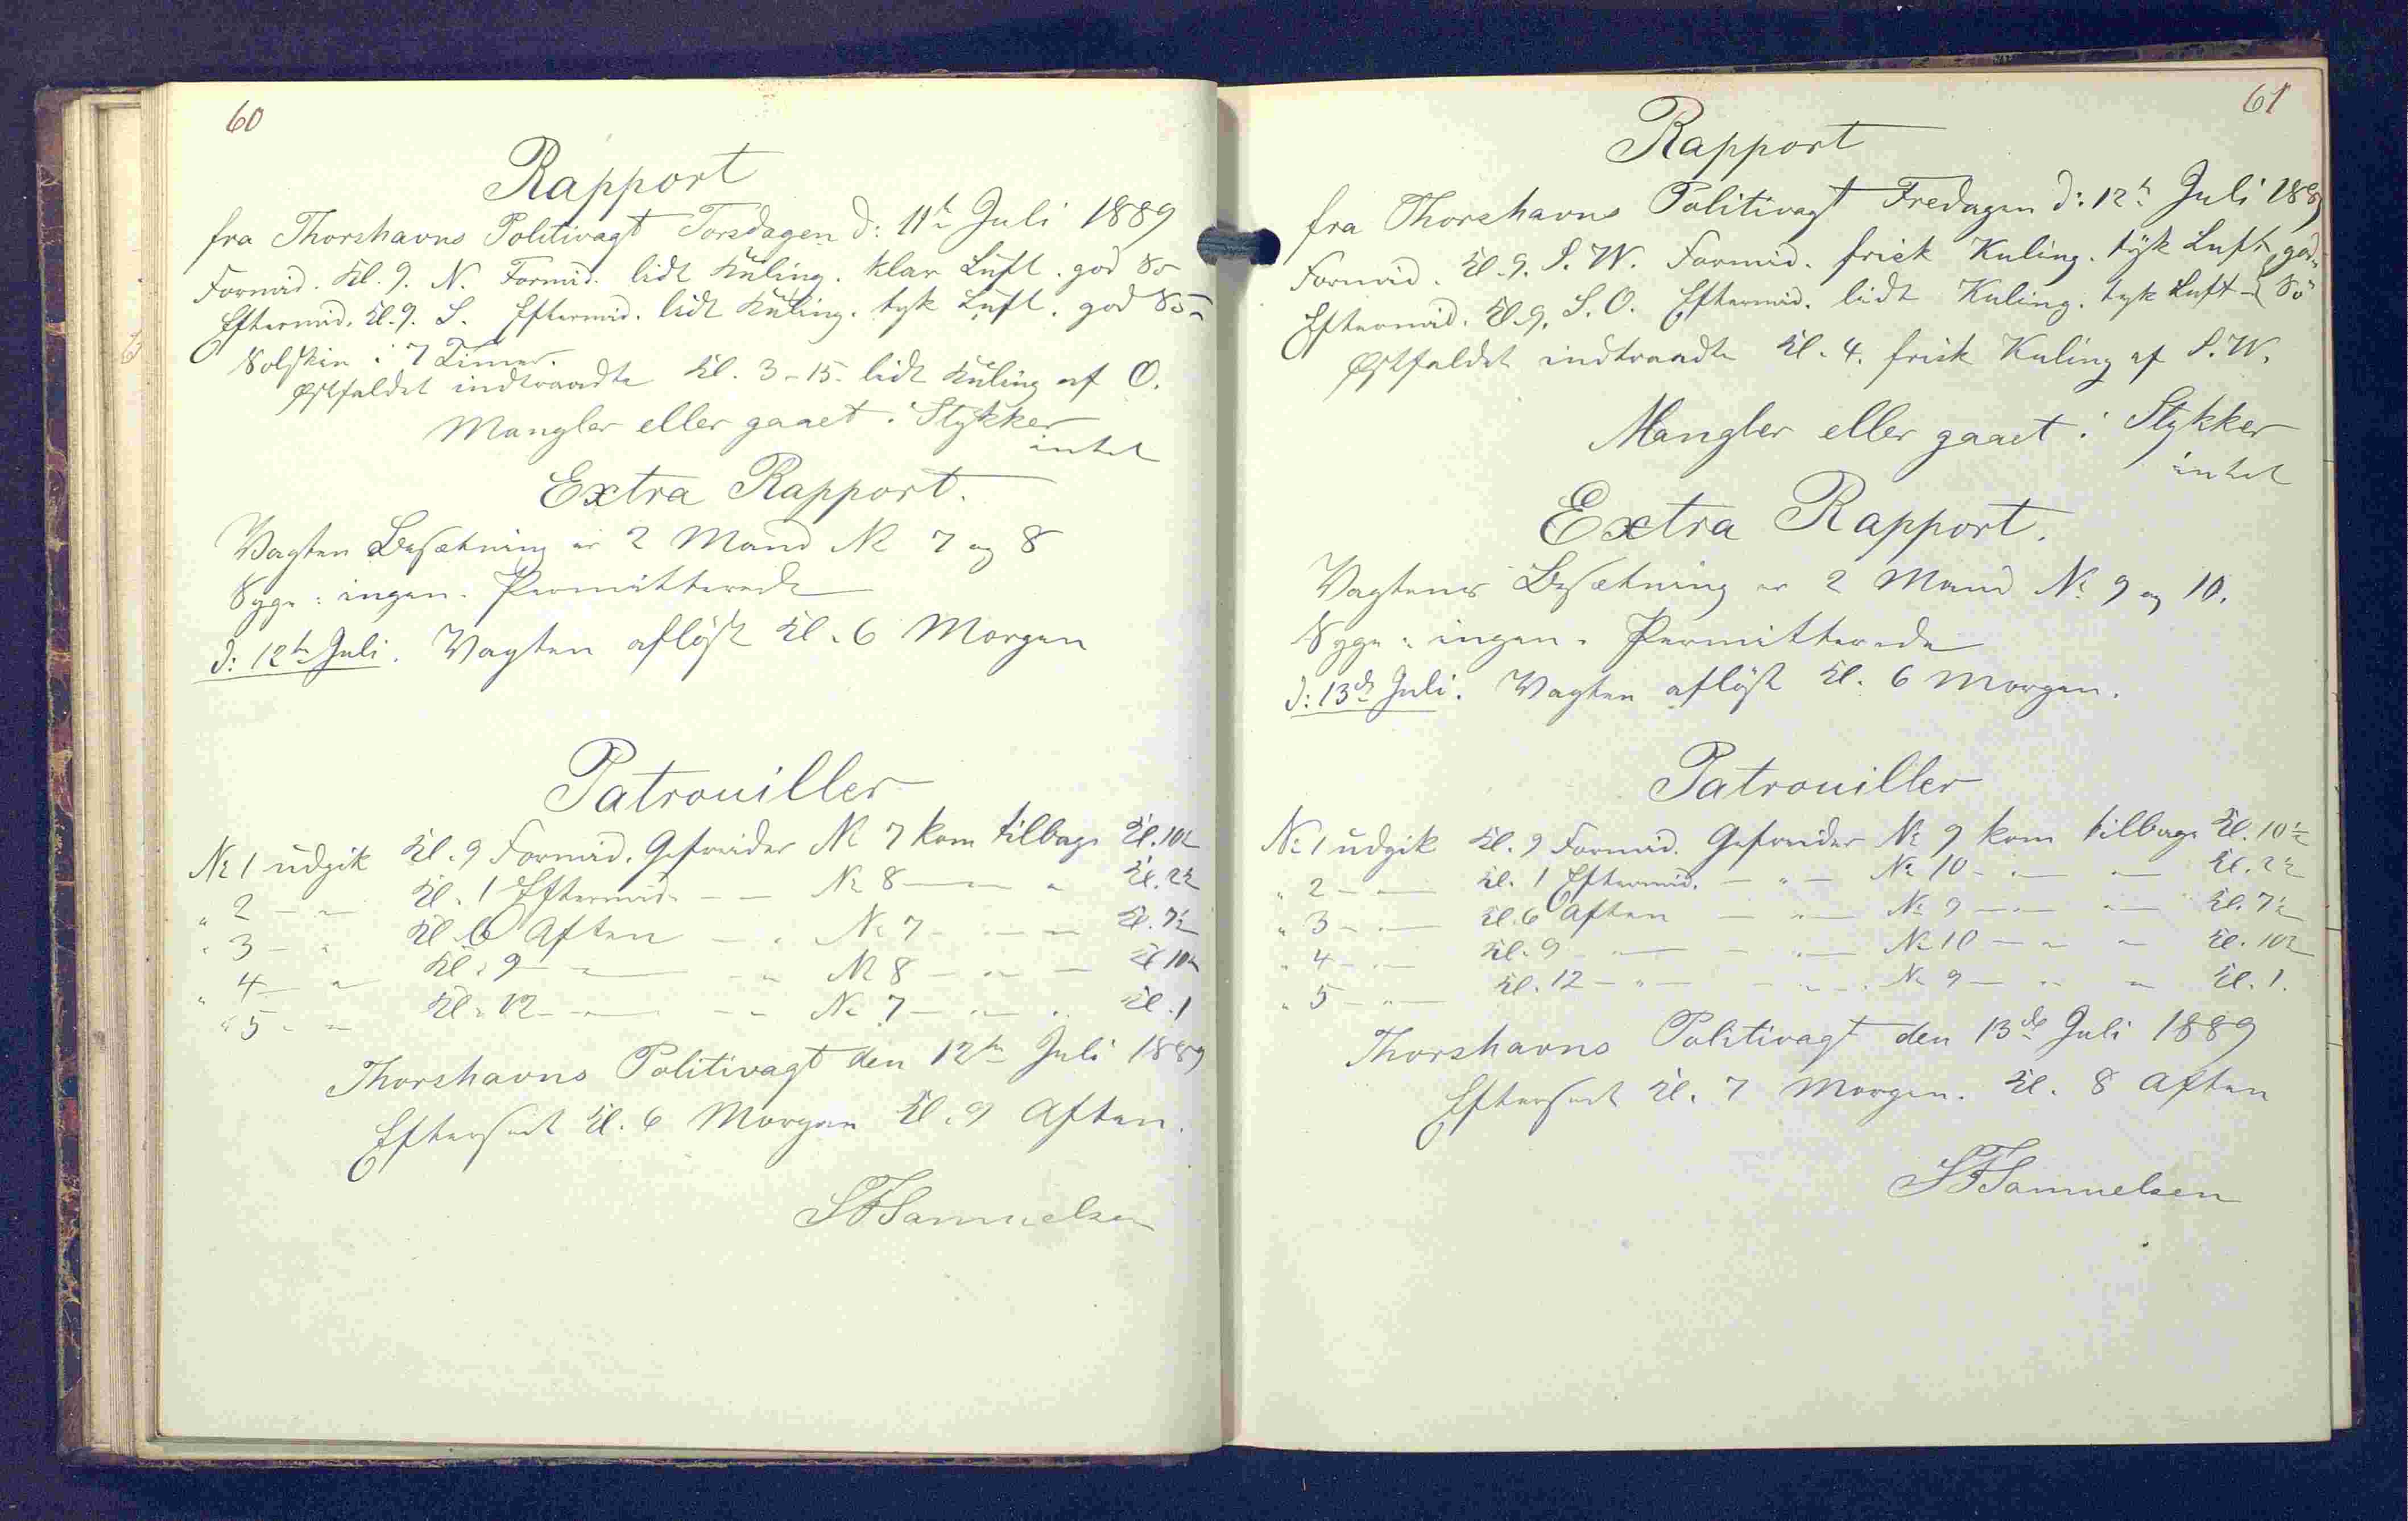 60
Rapport
fra Thorshavns Politivagt Torsdagen d: 11te Juli 1889
Formid. Kl. 9. N. Formid. lidt Kuling. klar Luft. god Sö
Eftermid. Kl. 9. S. Eftermid. lidt Kuling. tyk Luft. god Sö
Solskin i 7 Timer.
Østfaldet indtraadte Kl. 3-15. lidt Kuling af O.
Mangler eller gaaet i Stykker
intet
Extra Rapport.
Vagten Besætning er 2 Mand No 7 og 8
Syge: ingen. Permitterede
d: 12te Juli. Vagten aflöst Kl. 6 Morgen
Patrouiller
No 1 udgik Kl. 9 Formid. Gefreider No 7 kom tilbage Kl. 10½
" 2 — " Kl. 1 Eftermid. — — No 8 — " Kl. 2½
" 3 — " Kl. 6 Aften — " No 7 — " — Kl. 7½
" 4 — " Kl. 9 — " — " No 8 — " — Kl. 10½
" 5 — " Kl. 12 — " — " No 7 — " " Kl. 1
Thorshavns Politivagt den 12te Juli 1889
Efterseet Kl. 6 Morgen Kl. 9 Aften.
SFSamuelsen
61
Rapport
fra Thorshavns Politivagt Fredagen d: 12te Juli 1889
Formid. Kl. 9. S. W. Formid. frisk Kuling. tyk Luft, god
Eftermid. Kl. 9. S. O. Eftermid. lidt Kuling. tyk Luft — Sö
Østfaldet indtraadte Kl. 4. frisk Kuling af S. W.
Mangler eller gaaet i Stykker
intet
Extra Rapport.
Vagtens Besætning er 2 Mand No 9 og 10.
Syge: ingen. Permitterede
d: 13de Juli. Vagten aflöst Kl. 6 Morgen.
Patrouiller
No 1 udgik Kl. 9 Formid. Gefreider No 9 kom tilbage Kl. 10½
" 2 — " — Kl. 1 Eftermid. — " — No 10 — " — Kl. 2½
" 3 — " — Kl. 6 Aften — " — No 9 — " — Kl. 7½
" 4 — " — Kl. 9 — " — " — No 10 — " — Kl. 10½
" 5 — " — Kl. 12 — " — " — No 9 — " — Kl. 1.
Thorshavns Politivagt den 13de Juli 1889
Efterseet Kl. 7 Morgen. Kl. 8 Aften
SFSamuelsen